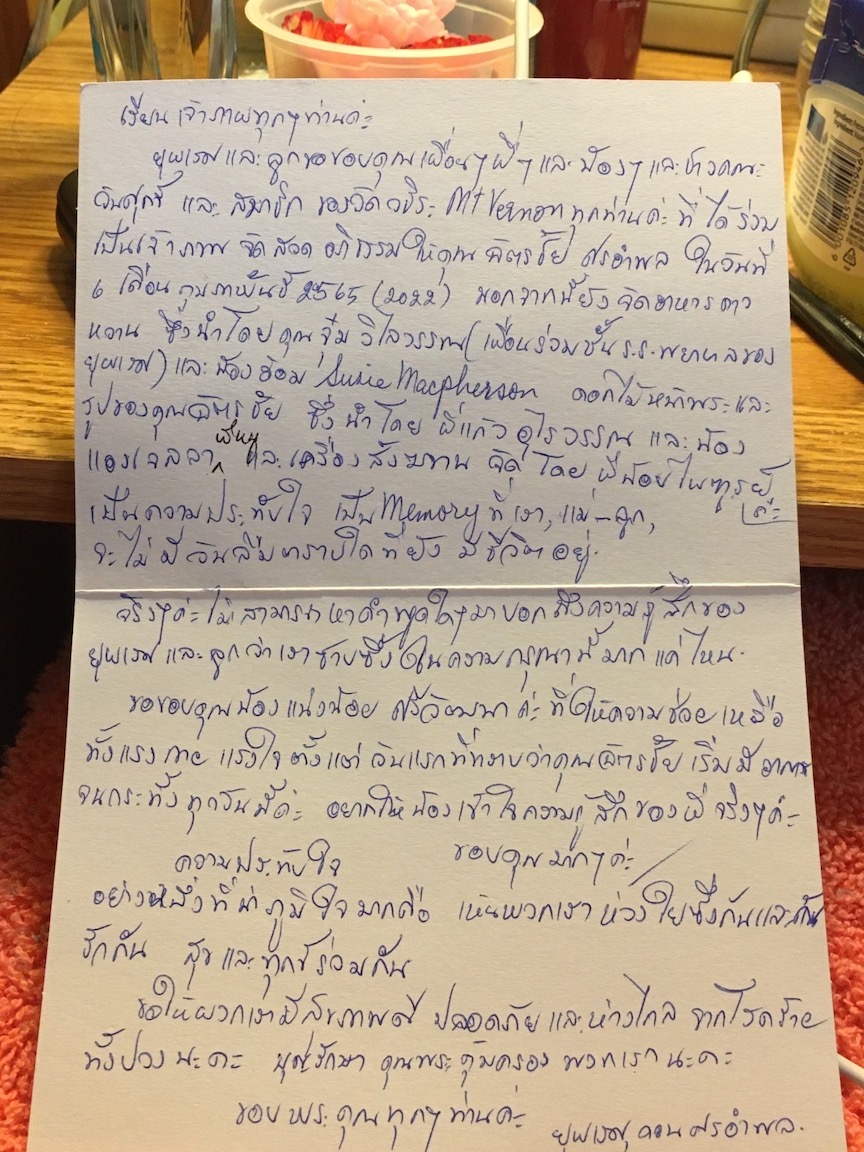 เรียน เจ้าภาพทุกๆท่านค่ะ
ยุพเรศ และ ลูกขอขอบคุณเพื่อนๆ พี่ๆ และ น้องๆ และ ชาวคณะ
วันศุกร์ และ สมาชิก ของวัดวชิระ Mt Vernon ทุกท่านค่ะ ที่ได้ร่วม
เป็นเจ้าภาพ จัดสวด อภิธรรมให้คุณ ฉัตรชัย ศรอำพล ในวันที่
6 เดือน กุมภาพันธ์ 2565 (2022) นอกจากนี้ยังจัดอาหารคาว
หวาน ซึ่งนำโดย คุณจุ๋ม วิไลวรรณ (เพื่อนร่วมชั้น ร.ร. พยาบาลของ
ยุพเรศ) และ น้องอ้อม Susie Macpherson ดอกไม้หน้าพระ และ
รูปของคุณฉัตรชัย ซึ่งนำโดย พี่แก้ว อุไรวรรณ และ น้อง
แองเจลลา เพื่อนๆ และ เครื่องสังฆทาน จัดโดย พี่น้อย ไพฑูรย์
ค่ะ
เป็นความประทับใจ เป็น Memory ที่ เรา, แม่ - ลูก,
จะไม่มีวันลืมตราบใดที่ยัง มีชีวิตอยู่.
จริงๆค่ะ ไม่สามารถหาคำพูดใดๆมาบอกถึงความรู้สึกของ
ยุพเรศ และ ลูกว่าเราซาบซึ้งในความกรุณานี้มากแค่ไหน.
ขอขอบคุณน้องแน่งน้อย ศรีวัฒนา ค่ะ ที่ให้ความช่วยเหลือ
ทั้งแรงกาย แรงใจ ตั้งแต่ วันแรกที่ทราบว่าคุณฉัตรชัย เริ่มมีอาการ
จนกระทั่งทุกวันนี้ค่ะ อยากให้น้องเข้าใจความรู้สึกของพี่จริงๆค่ะ
ขอบคุณมากๆค่ะ
ความประทับใจ
อย่างหนึ่งที่น่าภูมิใจมากคือ เห็นพวกเราห่วงใยซึ่งกันและกัน
รักกัน สุขและทุกข์ร่วมกัน
ขอให้พวกเรามีสุขภาพดี ปลอดภัย และห่างไกล จากโรคร้าย
ทั้งปวง นะคะ บุญรักษา คุณพระคุ้มครอง พวกเรานะคะ
ขอบพระคุณทุกๆท่านค่ะ
ยุพเรศ ศรอำพล.